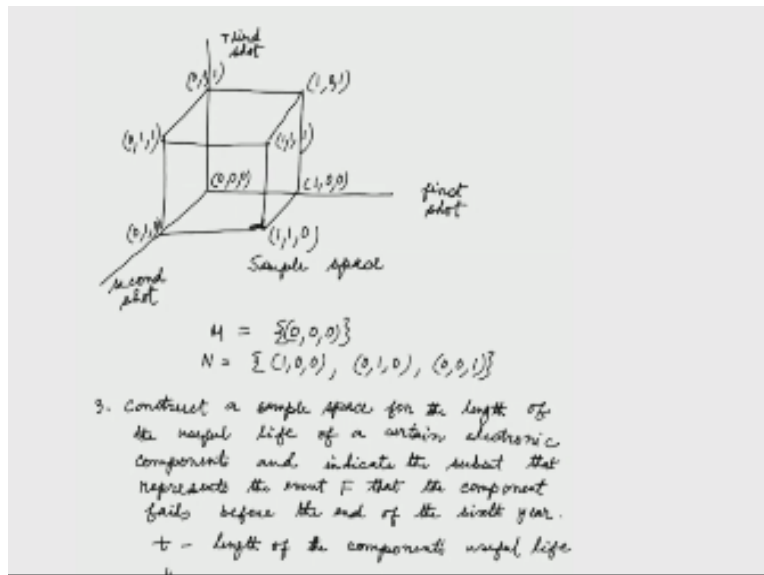 Third
shot
(0,0,1)
(1,0,1)
(0,1,1)
(1,1,1)
(0,0,0)
(1,0,0)
first
shot
(0,1,0)
(1,1,0)
second
shot
Sample space
M = {(0,0,0)}
N = {(1,0,0), (0,1,0), (0,0,1)}
3. Construct a sample space for the length of
the useful life of a certain electronic
component and indicate the subset that
represents the event F that the component
fails before the end of the sixth year.
t - length of the components useful life